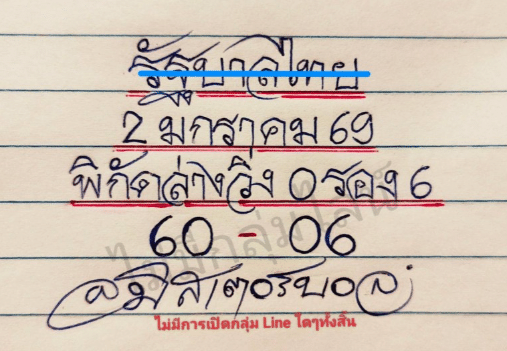 รัฐบาลไทย
2 มกราคม 69
พิกัดล่างวิ่ง 0 รอง 6
60 - 06
มิสเตอร์บอล
ไม่มีกลุ่มไลน์
ไม่มีการเปิดกลุ่ม Line ใดๆทั้งสิ้น